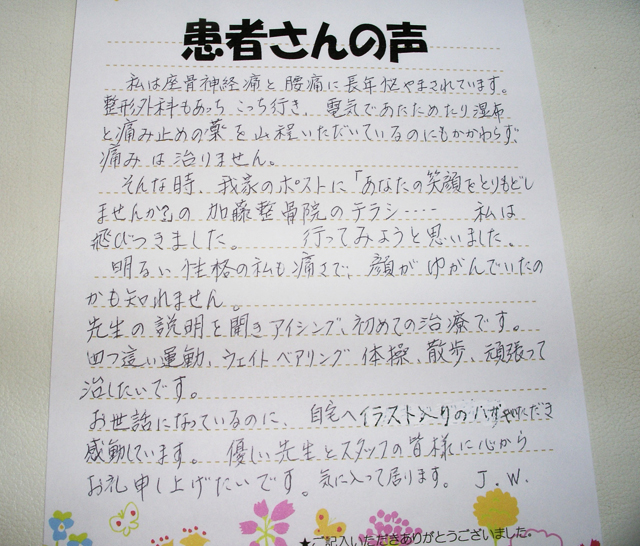 患者さんの声
私は座骨神経痛と腰痛に長年悩やまされています。
整形外科もあっち こっち行き、電気であたためたり湿布
と痛み止めの薬を山程いただいているのにもかかわらず、
痛みは治りません。
そんな時、我家のポストに「あなたの笑顔をとりもどし
ませんか?」の 加藤整骨院のテラシ‥‥ 私は
飛びつきました。 行ってみようと思いました。
明るい性格の私も痛さで、顔がゆがんでいたの
かも知れません。
先生の説明を聞きアイシング、初めての治療です。
四つ這い運動、ウェイトベアリング 体操、散歩、頑張って
治したいです。
お世話になっているのに、自宅へイラスト入りのハガキいただき
感動しています。 優しい先生とスタッフの皆様に心から
お礼申し上げたいです。気に入って居ります。 J.W.
★ご記入いただきありがとうございました。